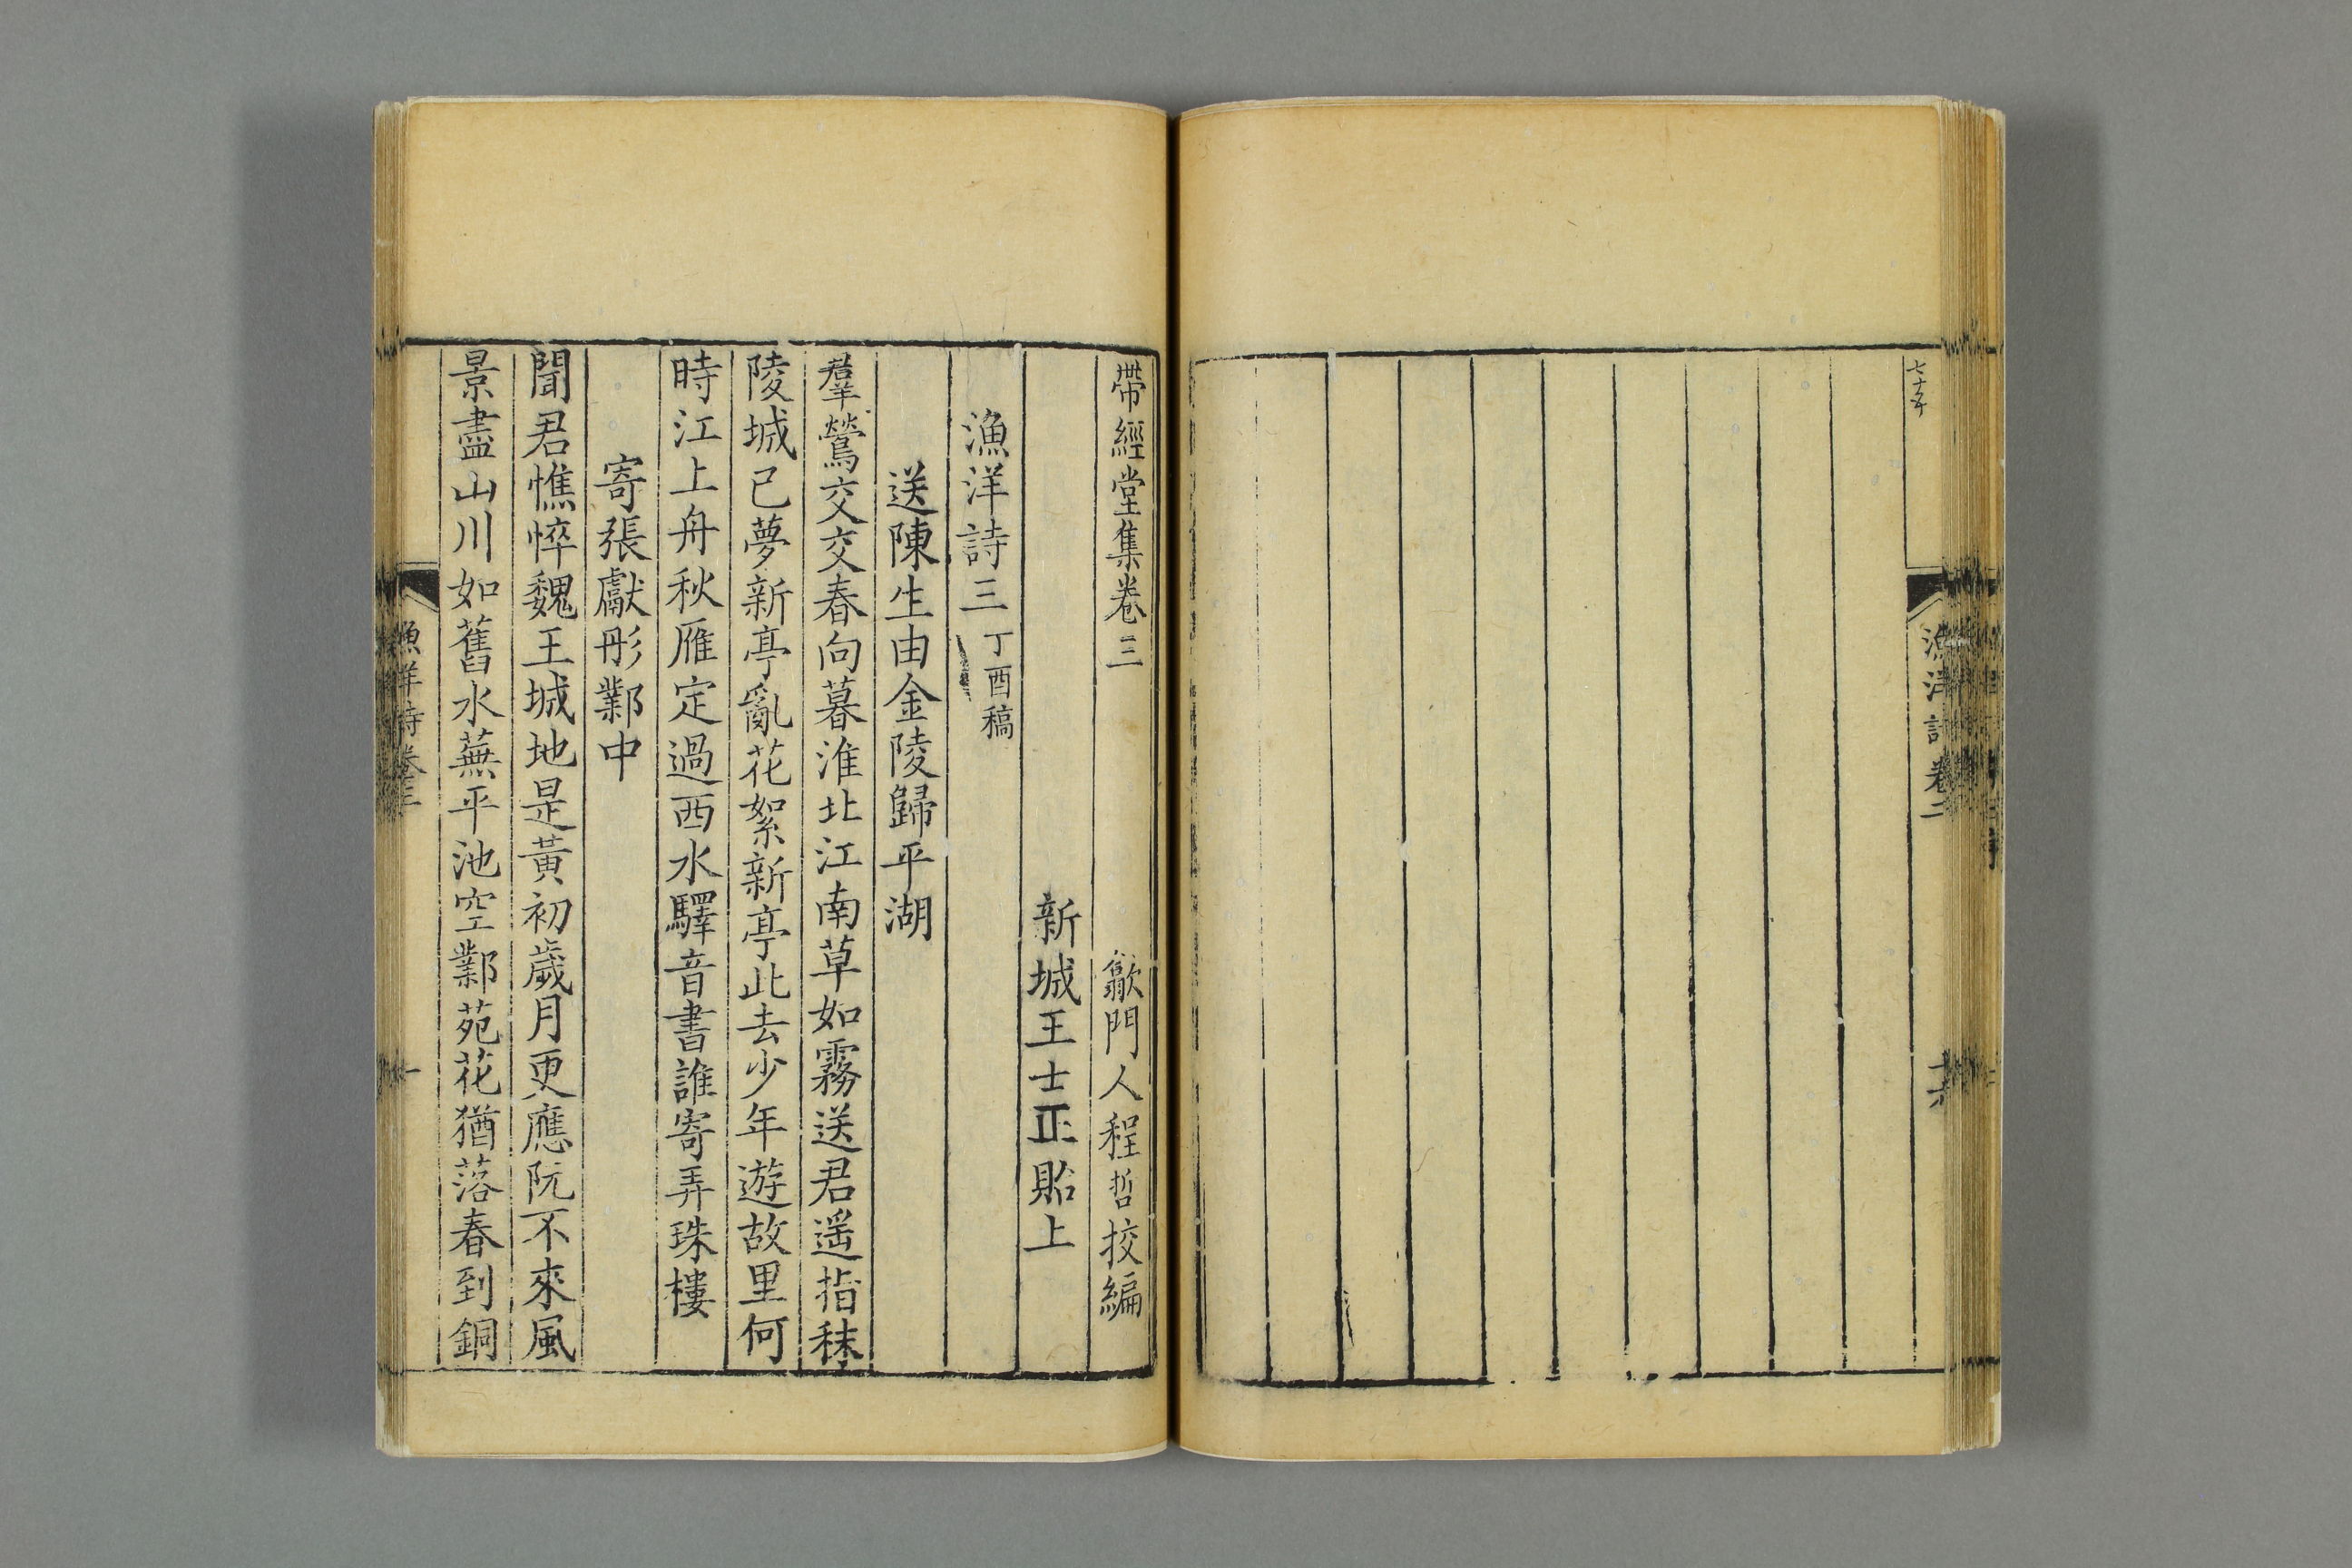 漁洋詩卷二
帶經堂集卷三
歙門人程哲挍編
新城王士正貽上
漁洋詩三 丁酉稿
送陳生由金陵歸平湖
羣鶯交交春向暮淮北江南草如霧送君遥指秣
陵城已夢新亭亂花絮新亭此去少年遊故里何
時江上舟秋雁定過西水驛音書誰寄弄珠樓
寄張獻彤鄴中
聞君憔悴魏王城地是黃初歲月更應阮不來風
景盡山川如舊水蕪平池空鄴苑花猶落春到銅
漁洋詩卷三
一